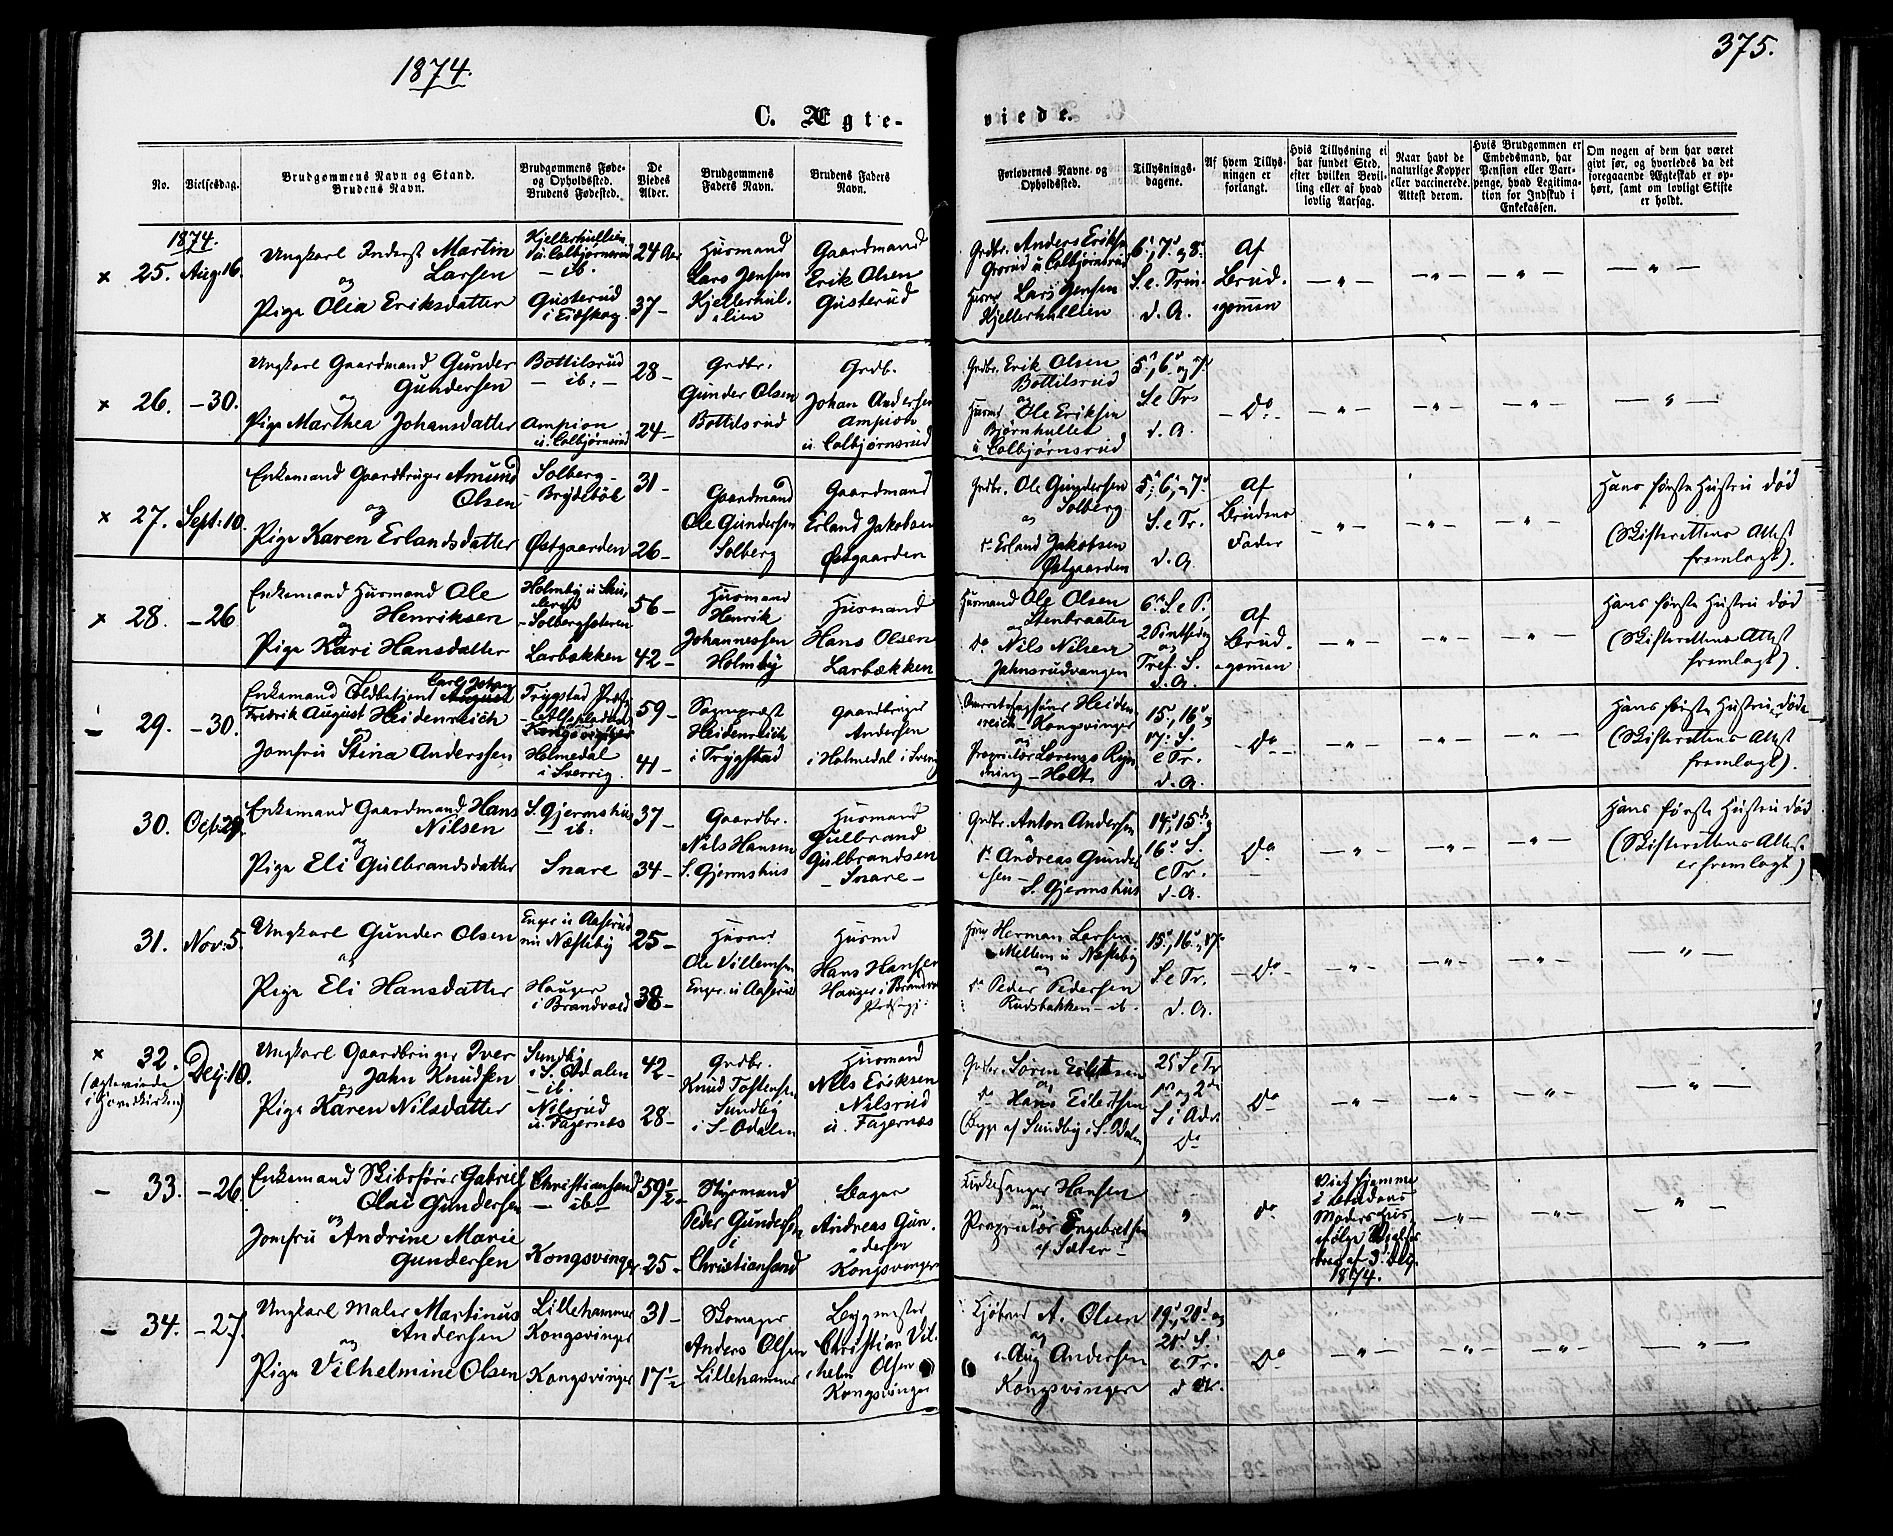 1874.
375.
C. Ægte-
viede.
No.
Vielsesdag.
Brudgommens Navn og Stand.
Brudens Navn.
Brudgommens Føde-
og Opholdssted.
Brudens Fødested.
De
Viedes
Alder.
Brudgommens
Faders Navn.
Brudens Faders
Navn.
Forlovernes Navne og
Opholdssted.
Tillysnings-
dagene.
Af hvem Tillys-
ningen er
forlangt.
Hvis Tillysning ei
har fundet Sted,
efter hvilken Bevil-
ling eller af hvad
lovlig Aarsag.
Naar havt de
naturlige Kopper
eller vaccinerede.
Attest derom.
Hvis Brudgommen er
Embedsmand, har
Pension eller Vart-
penge, hvad Legitima-
tion for Indskud i
Enkekassen.
Om nogen af dem har været
givt før, og hvorledes da det
foregaaende Ægteskab er op-
hørt, samt om lovligt Skifte
er holdt.
1874.
× 25. Aug: 16.
Ungkarl Inderst Martin
Larsen
og
Pige Olea Eriksdatter
Kjellerhullien
u. Colbjørnsrud
— ib.
Gusterud
i Eidskog.
24 Aar
37 —
Husmand
Lars Jensen
Kjellerhul-
lien
Gaardmand
Erik Olsen
Gusterud
Grdbr. Anders Eriksen
Grorud u Colbjørnsrud
Husmd Lars Jensen
Kjellerhullien
6', 7' og 8'
S. e. Trin.
d. A.
Af
Brud-
gommen
— " —
— " —
— " —
— " —
× 26. — 30.
Ungkarl Gaardmand Gunder
Gundersen
og
Pige Marthea Johansdatter
Bottilsrud
— ib: —
Ampion
u. Colbjørnsrud
28 —
24 —
Grdbr.
Gunder Olsen
Bottilsrud
Grdb.
Johan Andersen
Ampion
u. Colbjørnsrud
Grdbr. Erik Olsen
Bottilsrud
og
Husmd Ole Eriksen
Bjørnhullet
u Colbjørnsrud
5', 6' og 7'
S. e Tr.
d. A.
— Do —
— " —
— " —
— " —
— " —
× 27. Sept: 10.
Enkemand Gaardbruger Amund
Olsen
og
Pige Karen Erlandsdatter
Solberg —
— Brydebøl
Østgaarden
31 —
26 —
Gaardmand
Ole Gundersen
Solberg
Gaardmand
Erland Jakobsen
Østgaarden
Grdbr. Ole Gundersen
Solberg
og
Erland Jakobsen
Østgaarden
5', 6', og 7'
S. e Tr.
d. A.
Af
Brudens
Fader
— " —
— " —
— " —
Hans første Hustru død
(Skifterettens Attest
fremlagt).
× 28. — 26
Enkemand Husmand Ole
Henriksen
og
Pige Kari Hansdatter
Holmby u
— Solbergseteren
Larbækken
56 —
42 —
Husmand
Henrik
Johannessen
Holmby
Husmand
Hans Olsen
Larbækken
Husmand Ole Olsen
Stenbraaten
og
do Nils Nilsen
Jahnsrudvangen
6' S. e P.
2 Pintsedag
og
Tref. S.
d. A.
Af
Brud-
gommen
— " —
— " —
— " —
Hans første Hustru død
(Skifterettens Attest
fremlagt).
— 29. — 30.
Carl Johan
Enkemand Toldbetjent August
Fredrik August Heidenreich
Jomfru Stina Anderssen
Trygstad Præstg
Kongsvinger
Holmedal
i Sverrig.
59 —
41 —
Sognepræst
Heidenreich
i Trygstad
Gaardbruger
Andersen
i Holmedal i Sverig
Heiden-
reich — Kongsvinger
og
Proprietær Lorentz Ryn-
ning — Holt
15', 16' og
17' S.
e Tr.
d. A.
— Do —
— " —
— " —
— " —
Hans første Hustru døde
(Skifterettens Attest
fremlagt).
30. Oct: 29.
Enkemand Gaardmand Hans
Nilsen
og
Pige Eli Gulbrandsdatter
S. Gjermshus
— ib:
Snare
37 —
34 —
Gaardbr.
Nils Hansen
S. Gjermshus
Husmand
Gulbrand
Gulbrandsen
— Snare —
Grdbr. Anton Andersen
og
Andreas Gunder-
sen —
S. Gjermshus
14', 15' og
16' S.
e Tr.
d. A.
Do
—
— " —
— " —
— " —
Hans første Hustru død
(Skifterettens Attest
er fremlagt)
31. Nov: 5.
Ungkarl Gunder Olsen
og
Pige Eli Hansdatter
Enger u Aaserud
Næsteby
Hauger
i Brandvold
25 —
38 —
Husmd
Ole Villemsen
Enger u Aaserud
Husmd
Hans Hansen
Hauger i Brandvold
Præstegj:
Husmd Herman Larsen
Mellem u Næsteby
og
do Peder Pedersen
Rudsbakken — ib.
15', 16' og 17'
S. e Tr.
d. A.
— Do —
— " —
— " —
— " —
— " —
× 32. Dez: 10.
(ægteviede
i Hovedkirken)
Ungkarl Gaardbruger Iver
Jahn Knudsen
og
Pige Karen Nilsdatter
Sundby
i S. Odalen
— ib.
Nilsrud
u. Fagernæs
42 —
28 —
Grdbr.
Knud Tostensen
Sundby
i S. Odalen
Husmand
Nils Eriksen
Nilsrud
u. Fagernæs
Grdbr. Søren Eilertsen
og
do Hans Eilertsen
Begge af Sundby i S. Odalen
25' S e Tr
1' og 2'
S i Adv.
Do
Do
— " —
— " —
— " —
— " —
— 33. — 26.
Enkemand Skibsfører Gabriel
Olai Gundersen
og
Jomfru Andrine Marie
Gundersen
Christiansand
— ib —
Kongsvinger
59½ —
25 —
Styrmand
Peder Gundersen
i
Christiansand
Bager
Andreas Gun-
dersen
Kongsvinger
Kirkesanger Hansen
og
Proprietær Engebretsen
af Sæter —
"
do
Viet hjemme
i Brudens
Moders Hus
ifølge
brev af 3' Dez.
1874.
— " —
— " —
— " —
— 34. — 27.
Ungkarl Maler Martinus
Andersen
og
Pige Vilhelmine Olsen
Lillehammer
Kongsvinger
Kongsvinger
31 —
17½
Skomager
Anders Olsen
Lillehammer
Bygmester
Christian Vil-
helm Olsen
Kongsvinger
Kjøbmd A. Olsen
og
Aug Andersen
Kongsvinger
19', 20' og
21' S.
e Tr.
d A.
Do
— " —
— " —
— " —
— " —